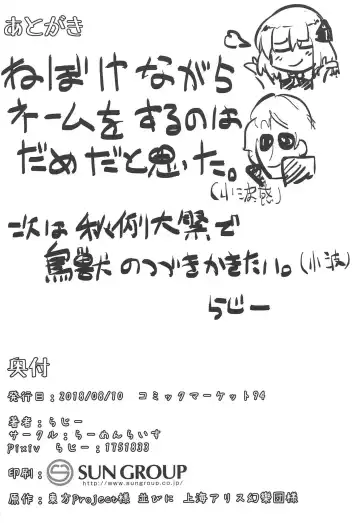 あとがき
ねぼけながら
ネームをするのは
だめだと思いた。
(小波感)
次は秋例大祭で
鳥獣のつづきかきたい。(小波)
らじー
奥付
発行日：2018/08/10 コミックマーケット94
著者：らじー
サークル：らーめんらいす
Pixiv らじー：1751833
印刷：SUN GROUP
http://www.sungroup.co.jp/
原作：東方Project様 並びに 上海アリス幻樂団様